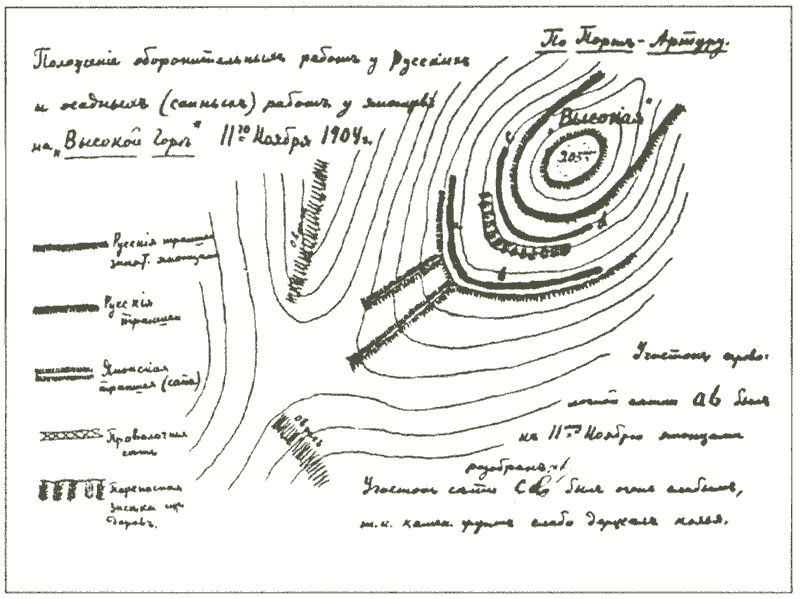 По Портъ-Артуру.
Положеніе оборонительныхъ работъ у Русскихъ
и осадныхъ (сапныхъ) работъ у японцевъ
на „Высокой Горѣ“ 11го Ноября 1904 г.
„Высокая“
203
c
d
a
b
Овраг
Овраг
Русскія траншеи
занят. японцами
Русскія
траншеи
Японская
траншея (сапа)
Проволочная
сеть
Переносная
засека изъ
деревъ.
Участокъ прово-
лочной сетки ab былъ
къ 11му Ноября японцами
разобранъ
Участокъ сети cd былъ очень слабымъ,
т. к. камен. грунтъ слабо держалъ колья.